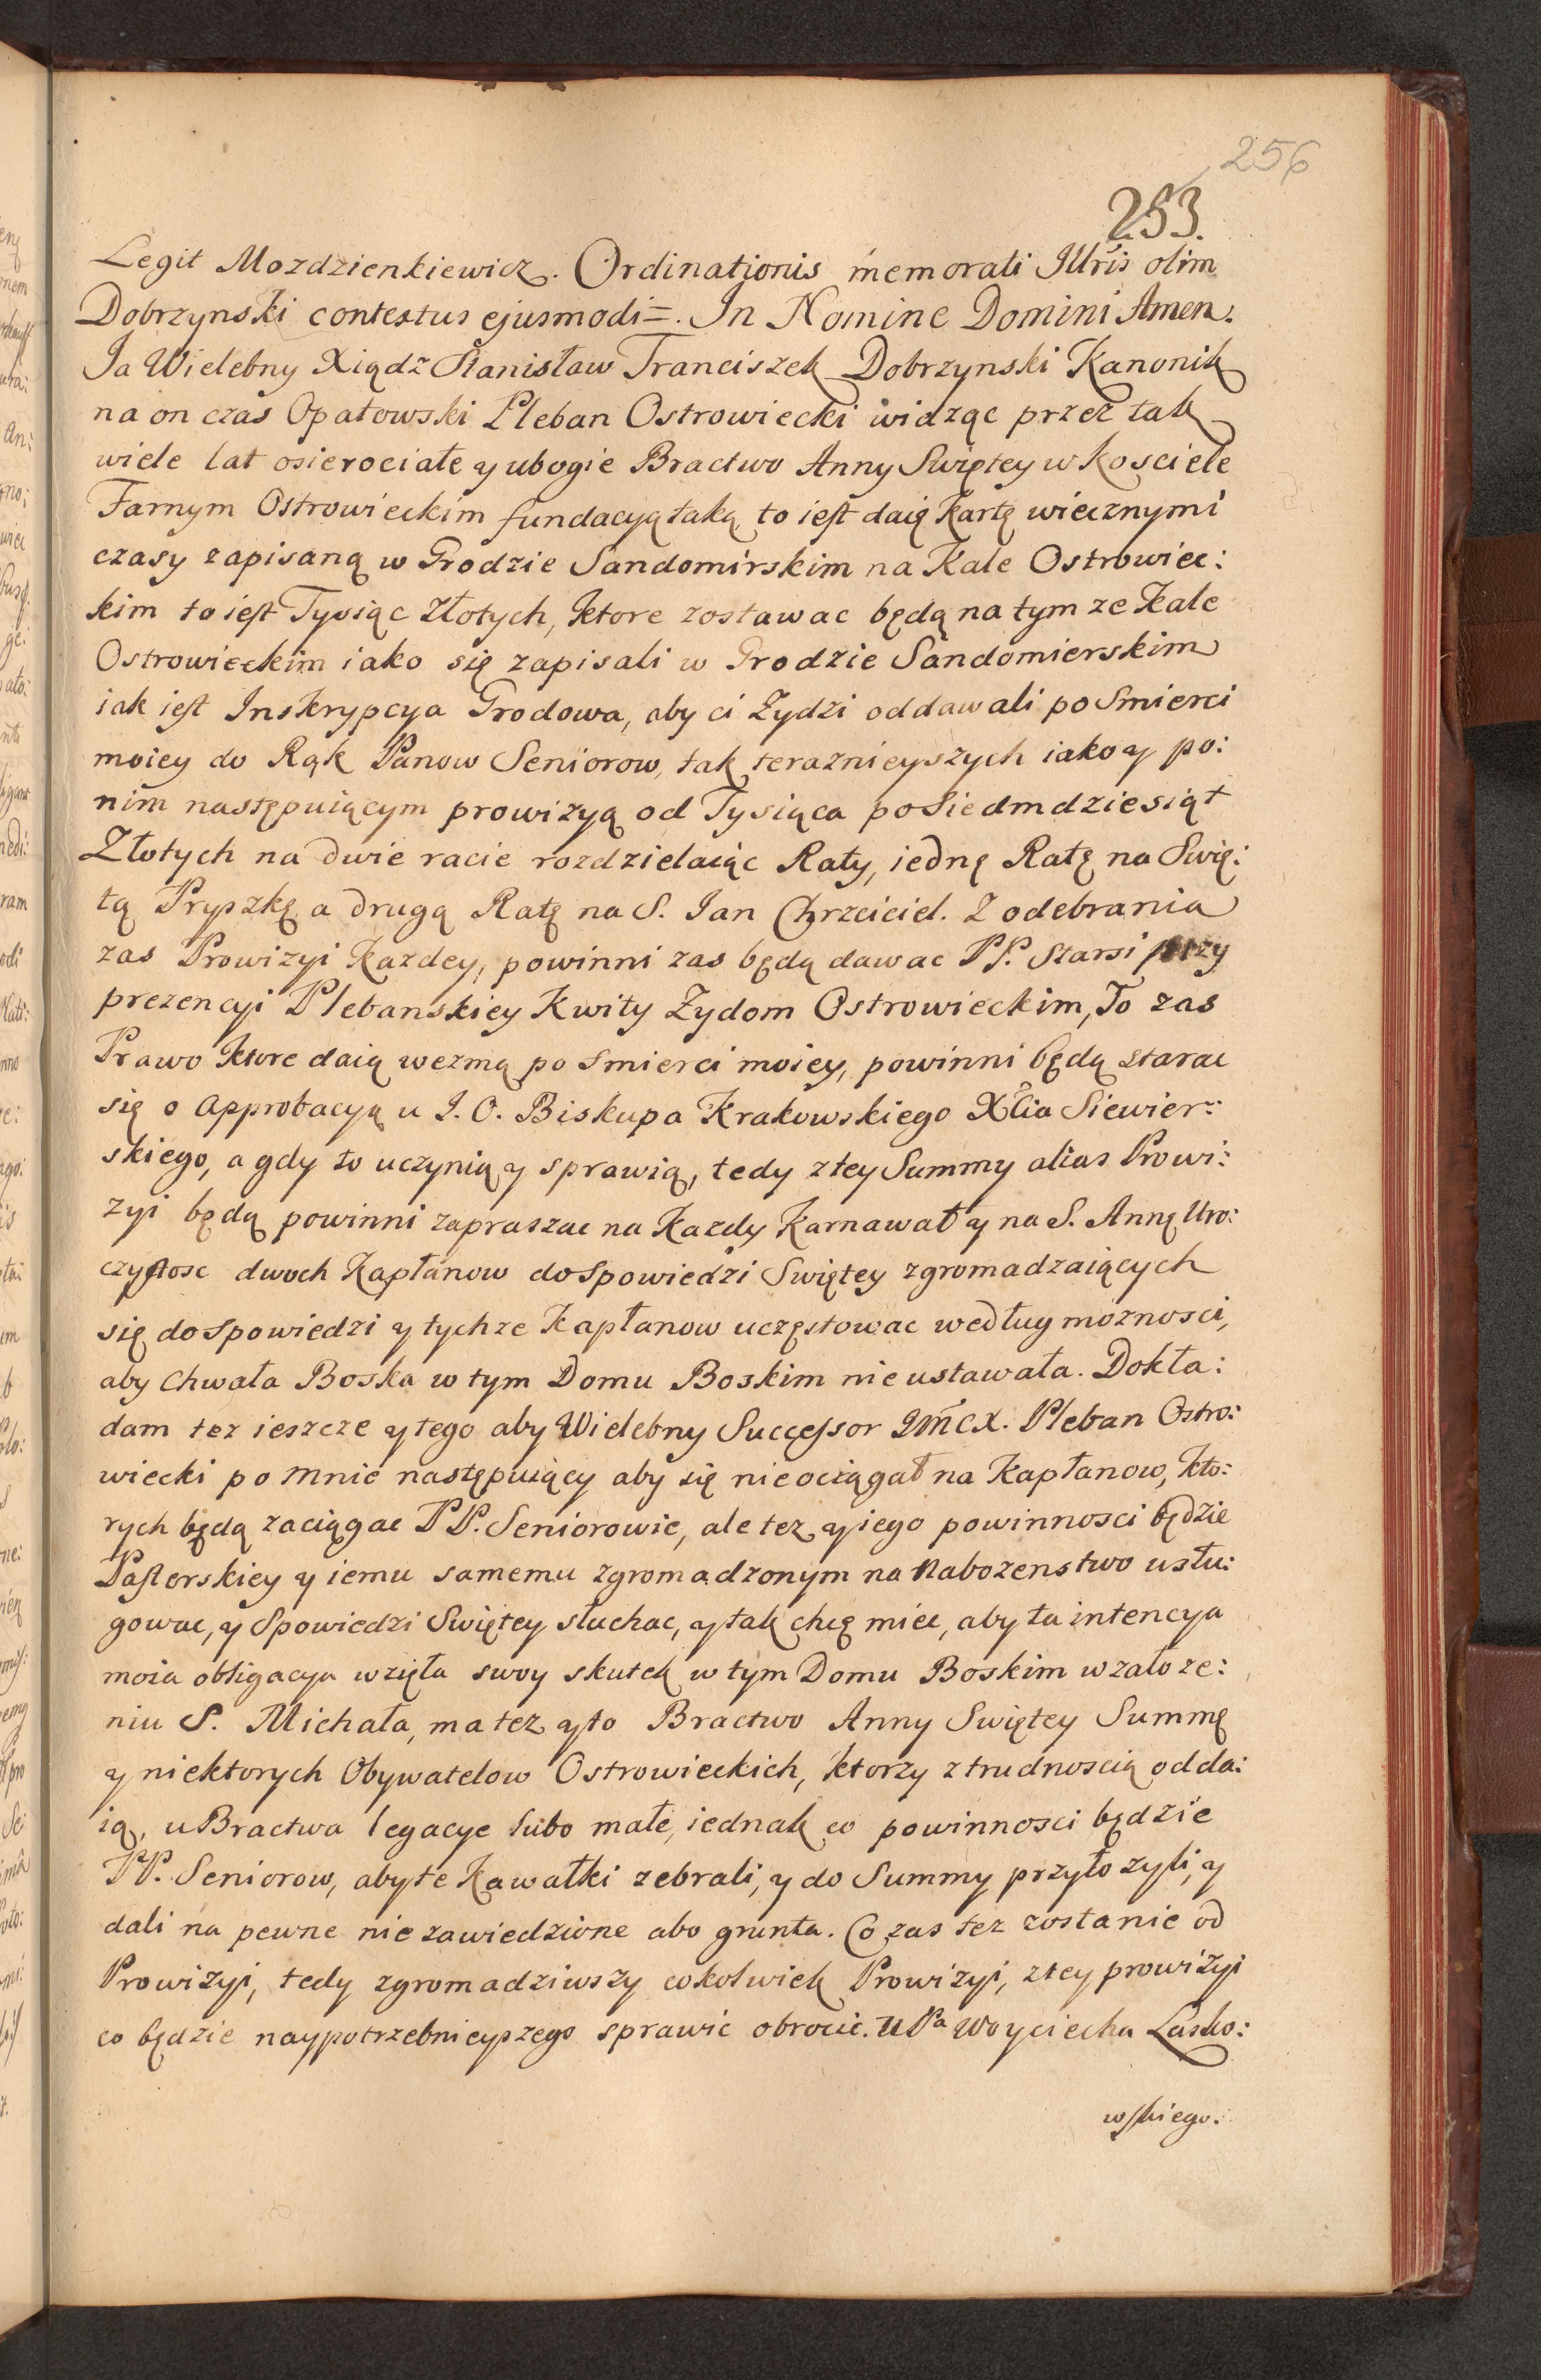 256
253.
Legit Mozdzienkiewicz. Ordinationis memorati Illris olim
Dobrzynski contextus ejusmodi =. In Nomine Domini Amen.
Ja Wielebny Xiądz Stanisław Franciszek Dobrzynski Kanonik
na on czas Opatowski Pleban Ostrowiecki widząc przez tak
wiele lat osierociałe y ubogie Bractwo Anny Swiętey w Kosciele
Farnym Ostrowieckim fundacyą taką, to iest daię Kartę wiecznymi
czasy zapisaną w Grodzie Sandomirskim na Kale Ostrowiec:
kim to iest Tysiąc Złotych, ktore zostawac będą na tym ze Kale
Ostrowieckim iako się zapisali w Grodzie Sandomierskim
iak iest Inskrypcya Grodowa, aby ci Zydzi oddawali po Smierci
moiey do Rąk Panow Seniorow, tak teraznieyszych iako y po:
nim następuiącym prowizyą od Tysiąca po Siedmdziesiąt
Złotych na dwie racie rozdzielaiąc Raty, iednę Ratę na Swię:
tą Pryszkę a drugą Ratę na S. Jan Chrzciciel. Z odebrania
zas Prowizyi Kazdey, powinni zas będą dawac PP. Starsi przy
prezencyi Plebanskiey Kwity Zydom Ostrowieckim, To zas
Prawo Ktore daią wezmą po smierci moiey, powinni będą starac
się o Approbacyą u J. O. Biskupa Krakowskiego Xcia Siewier:
skiego, a gdy to uczynią y sprawią, tedy z tey Summy alias Prowi:
zyi będą powinni zapraszac na Kazdy Karnawał y na S. Annę Uro:
czystosc dwoch Kapłanow do Spowiedzi Swiętey zgromadzaiących
się do Spowiedzi y tychze Kapłanow uczęstowac według moznosci,
aby Chwała Boska w tym Domu Boskim nie ustawała. Dokła:
dam tez ieszcze y tego aby Wielebny Successor JmcX. Pleban Ostro:
wiecki po mnie następuiący aby się nie ociągał na Kapłanow, kto:
rych będą zaciągac PP. Seniorowie, ale tez y iego powinnosci będzie
Pasterskiey y iemu samemu zgromadzonym na Nabozenstwo usłu:
gowac, y Spowiedzi Swiętey słuchac, y tak chcę miec, aby ta intencya
moia obligacya wzięła swoy skutek w tym Domu Boskim w załoze:
niu S. Michała, ma tez y to Bractwo Anny Swiętey Summę
y niektorych Obywatelow Ostrowieckich, ktorzy z trudnoscią odda:
ią, u Bractwa legacye lubo małe, iednak co powinnosci będzie
PP. Seniorow, aby te Kawałki zebrali, y do Summy przyłozyli, y
dali na pewne nie zawiedzione abo grunta. Co zas tez zostanie od
Prowizyi, tedy zgromadziwszy cokolwiek Prowizyi, z tey prowizyi
co będzie naypotrzebnieyszego sprawic obrocic. U Pa Woyciecha Lasko:
wskiego: